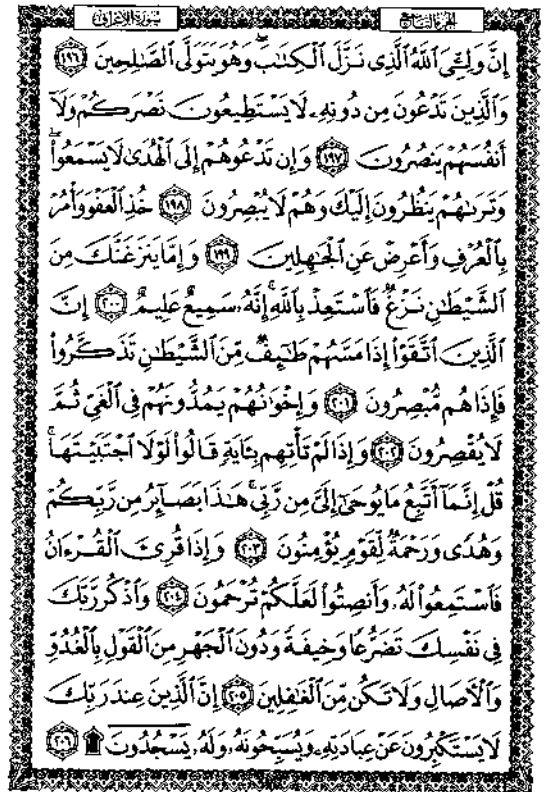 سُورَةُ الأَعْرَافِ الجزء التاسع
إِنَّ وَلِـِّۧىَ ٱللَّهُ ٱلَّذِى نَزَّلَ ٱلْكِتَٰبَ ۖ وَهُوَ يَتَوَلَّى ٱلصَّٰلِحِينَ ١٩٦
وَٱلَّذِينَ تَدْعُونَ مِن دُونِهِۦ لَا يَسْتَطِيعُونَ نَصْرَكُمْ وَلَآ
أَنفُسَهُمْ يَنصُرُونَ ١٩٧ وَإِن تَدْعُوهُمْ إِلَى ٱلْهُدَىٰ لَا يَسْمَعُوا۟ ۖ
وَتَرَىٰهُمْ يَنظُرُونَ إِلَيْكَ وَهُمْ لَا يُبْصِرُونَ ١٩٨ خُذِ ٱلْعَفْوَ وَأْمُرْ
بِٱلْعُرْفِ وَأَعْرِضْ عَنِ ٱلْجَٰهِلِينَ ١٩٩ وَإِمَّا يَنزَغَنَّكَ مِنَ
ٱلشَّيْطَٰنِ نَزْغٌ فَٱسْتَعِذْ بِٱللَّهِ ۚ إِنَّهُۥ سَمِيعٌ عَلِيمٌ ٢٠٠ إِنَّ
ٱلَّذِينَ ٱتَّقَوْا۟ إِذَا مَسَّهُمْ طَٰٓئِفٌ مِّنَ ٱلشَّيْطَٰنِ تَذَكَّرُوا۟
فَإِذَا هُم مُّبْصِرُونَ ٢٠١ وَإِخْوَٰنُهُمْ يَمُدُّونَهُمْ فِى ٱلْغَىِّ ثُمَّ
لَا يُقْصِرُونَ ٢٠٢ وَإِذَا لَمْ تَأْتِهِم بِـَٔايَةٍ قَالُوا۟ لَوْلَا ٱجْتَبَيْتَهَا ۚ
قُلْ إِنَّمَآ أَتَّبِعُ مَا يُوحَىٰٓ إِلَىَّ مِن رَّبِّى ۚ هَٰذَا بَصَآئِرُ مِن رَّبِّكُمْ
وَهُدًى وَرَحْمَةٌ لِّقَوْمٍ يُؤْمِنُونَ ٢٠٣ وَإِذَا قُرِئَ ٱلْقُرْءَانُ
فَٱسْتَمِعُوا۟ لَهُۥ وَأَنصِتُوا۟ لَعَلَّكُمْ تُرْحَمُونَ ٢٠٤ وَٱذْكُر رَّبَّكَ
فِى نَفْسِكَ تَضَرُّعًا وَخِيفَةً وَدُونَ ٱلْجَهْرِ مِنَ ٱلْقَوْلِ بِٱلْغُدُوِّ
وَٱلْءَاصَالِ وَلَا تَكُن مِّنَ ٱلْغَٰفِلِينَ ٢٠٥ إِنَّ ٱلَّذِينَ عِندَ رَبِّكَ
لَا يَسْتَكْبِرُونَ عَنْ عِبَادَتِهِۦ وَيُسَبِّحُونَهُۥ وَلَهُۥ يَسْجُدُونَ ۩ ٢٠٦